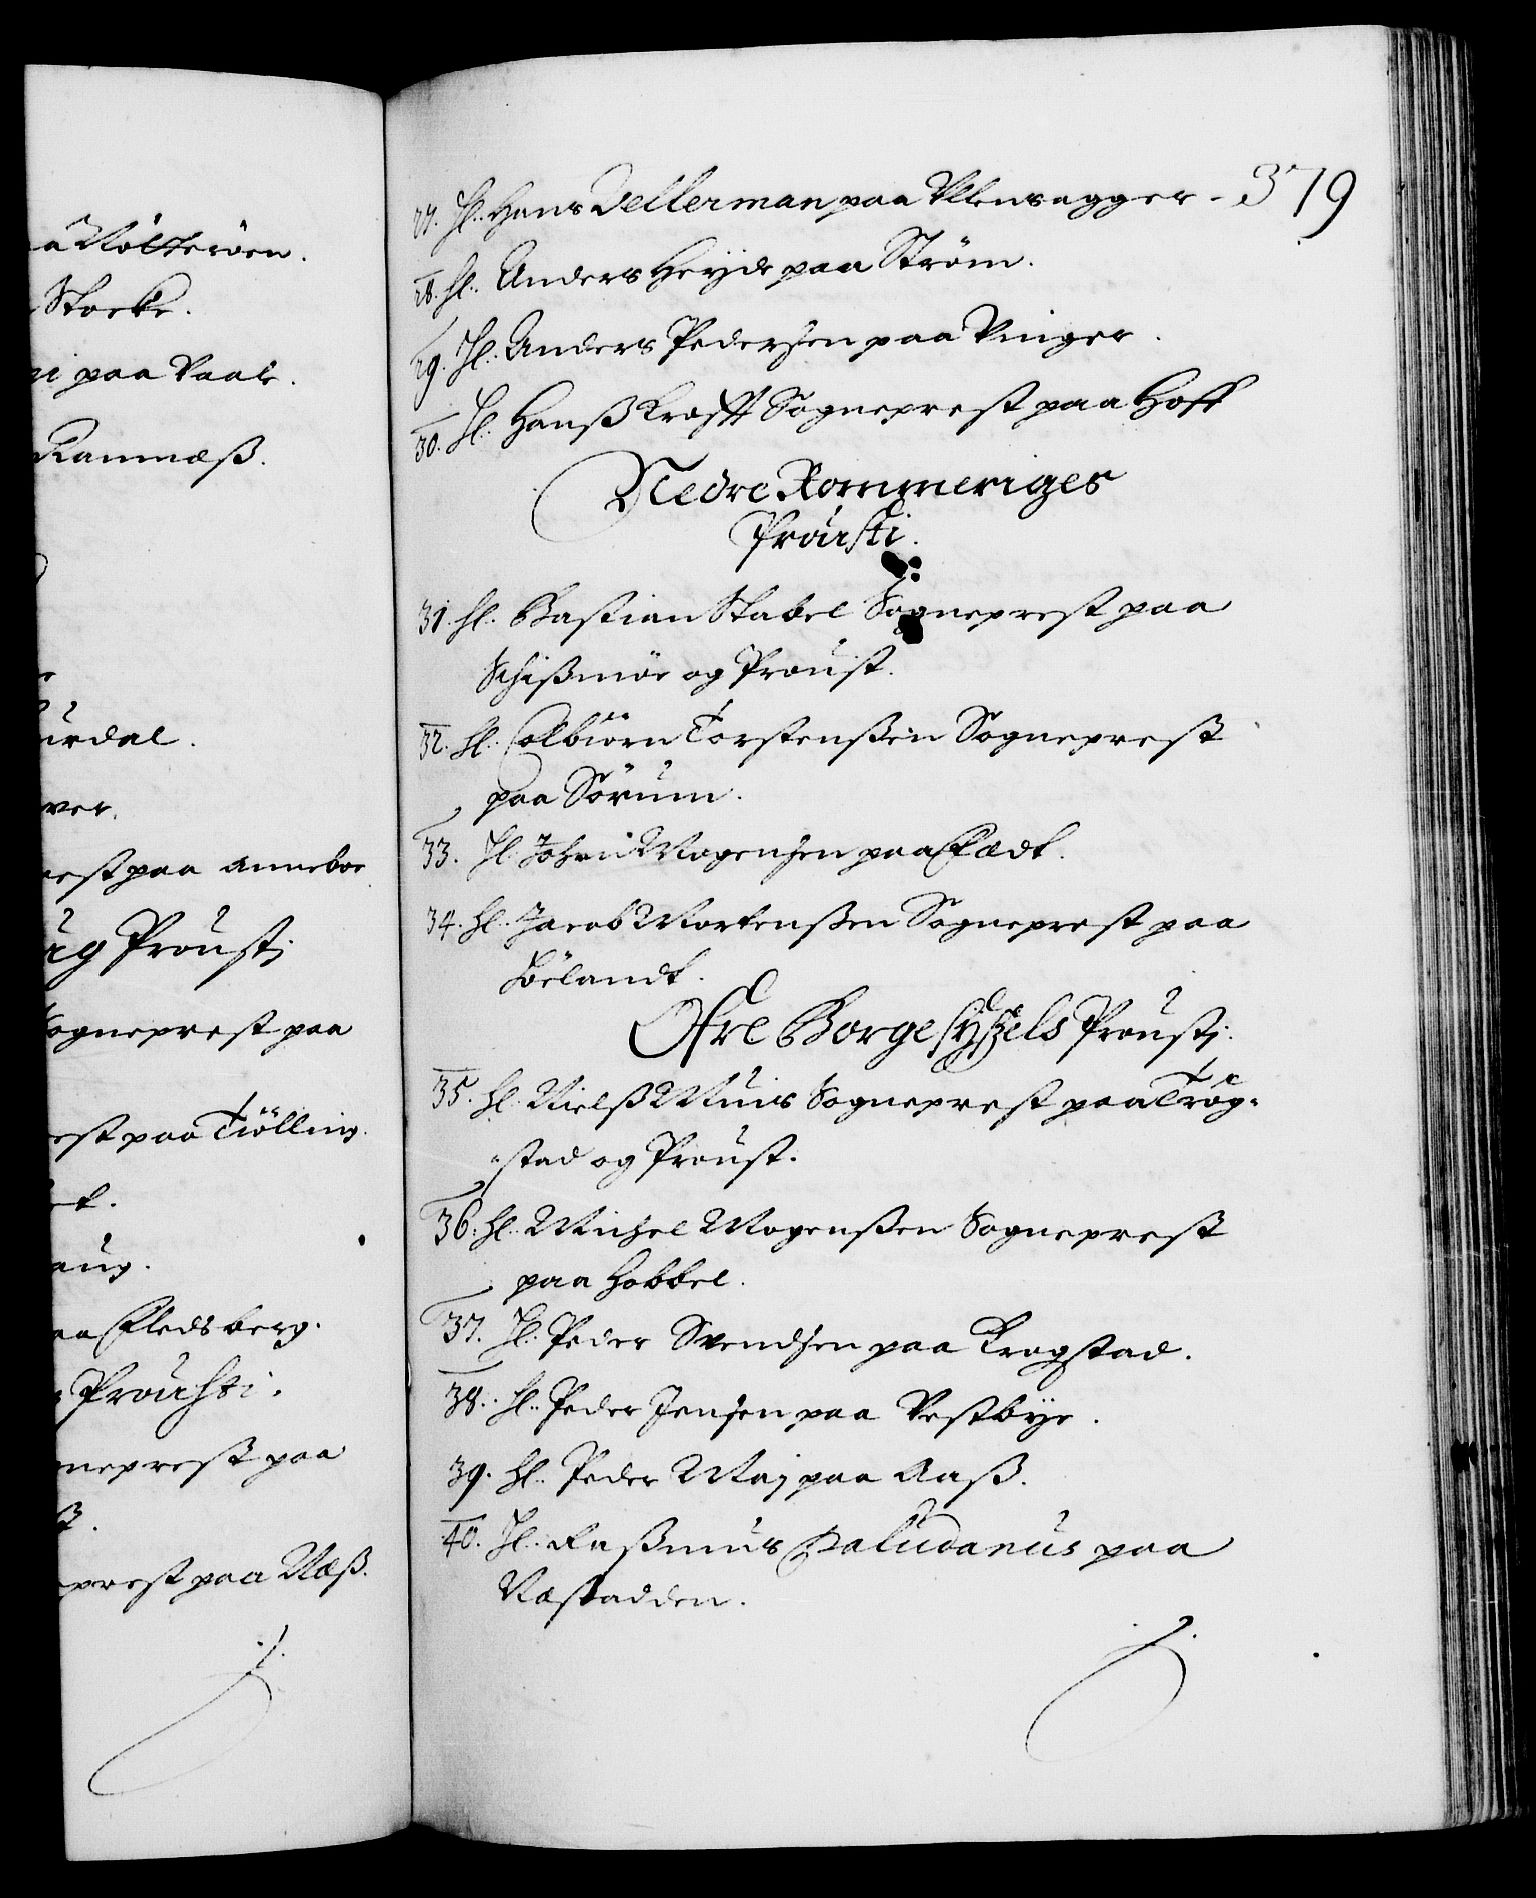 aa Nötteröen.
Stocke.
ni paa Vaale.
Ramnæß.
urdal.
ver.
rest paa Anneboe
rg Proustj
Sogneprest paa
rest paa Tiölling.
et.
aug.
aa Fledsberg.
Prousti.
neprest paa
ß.
prest paa Næß.
379
27. Hl. Hans Dellerman paa Ullensagger.
28. Hl. Anders Heyde paa Ström.
29. Hl. Anders Pedersen paa Vinger.
30. Hl. Hanß Krafft Sogneprest paa Hoff
Nedre Rommeriges
Prousti.
31. Hl. Bastian Stabel Sogneprest paa
Schißmöe og Proust.
32. Hl. Colbiörn Torstenßen Sogneprest
paa Sörum.
33. Hl. Johan Mogensen paa Fædt.
34. Hl. Jacob Mortenßen Sogneprest paa
Höelandt.
Öfre Borgesyßels Proustj.
35. Hl. Nielß Muus Sogneprest paa Trög-
stad og Proust.
36. Hl. Michel Mogenßen Sogneprest
paa Hobbel.
37. Hl. Peder Svendsen paa Krogstad.
38. Hl. Peder Jensen paa Vestbye.
39. Hl. Peder Maj paa Aaß.
40. Hl. Raßmus Paludanus paa
Næsodden.